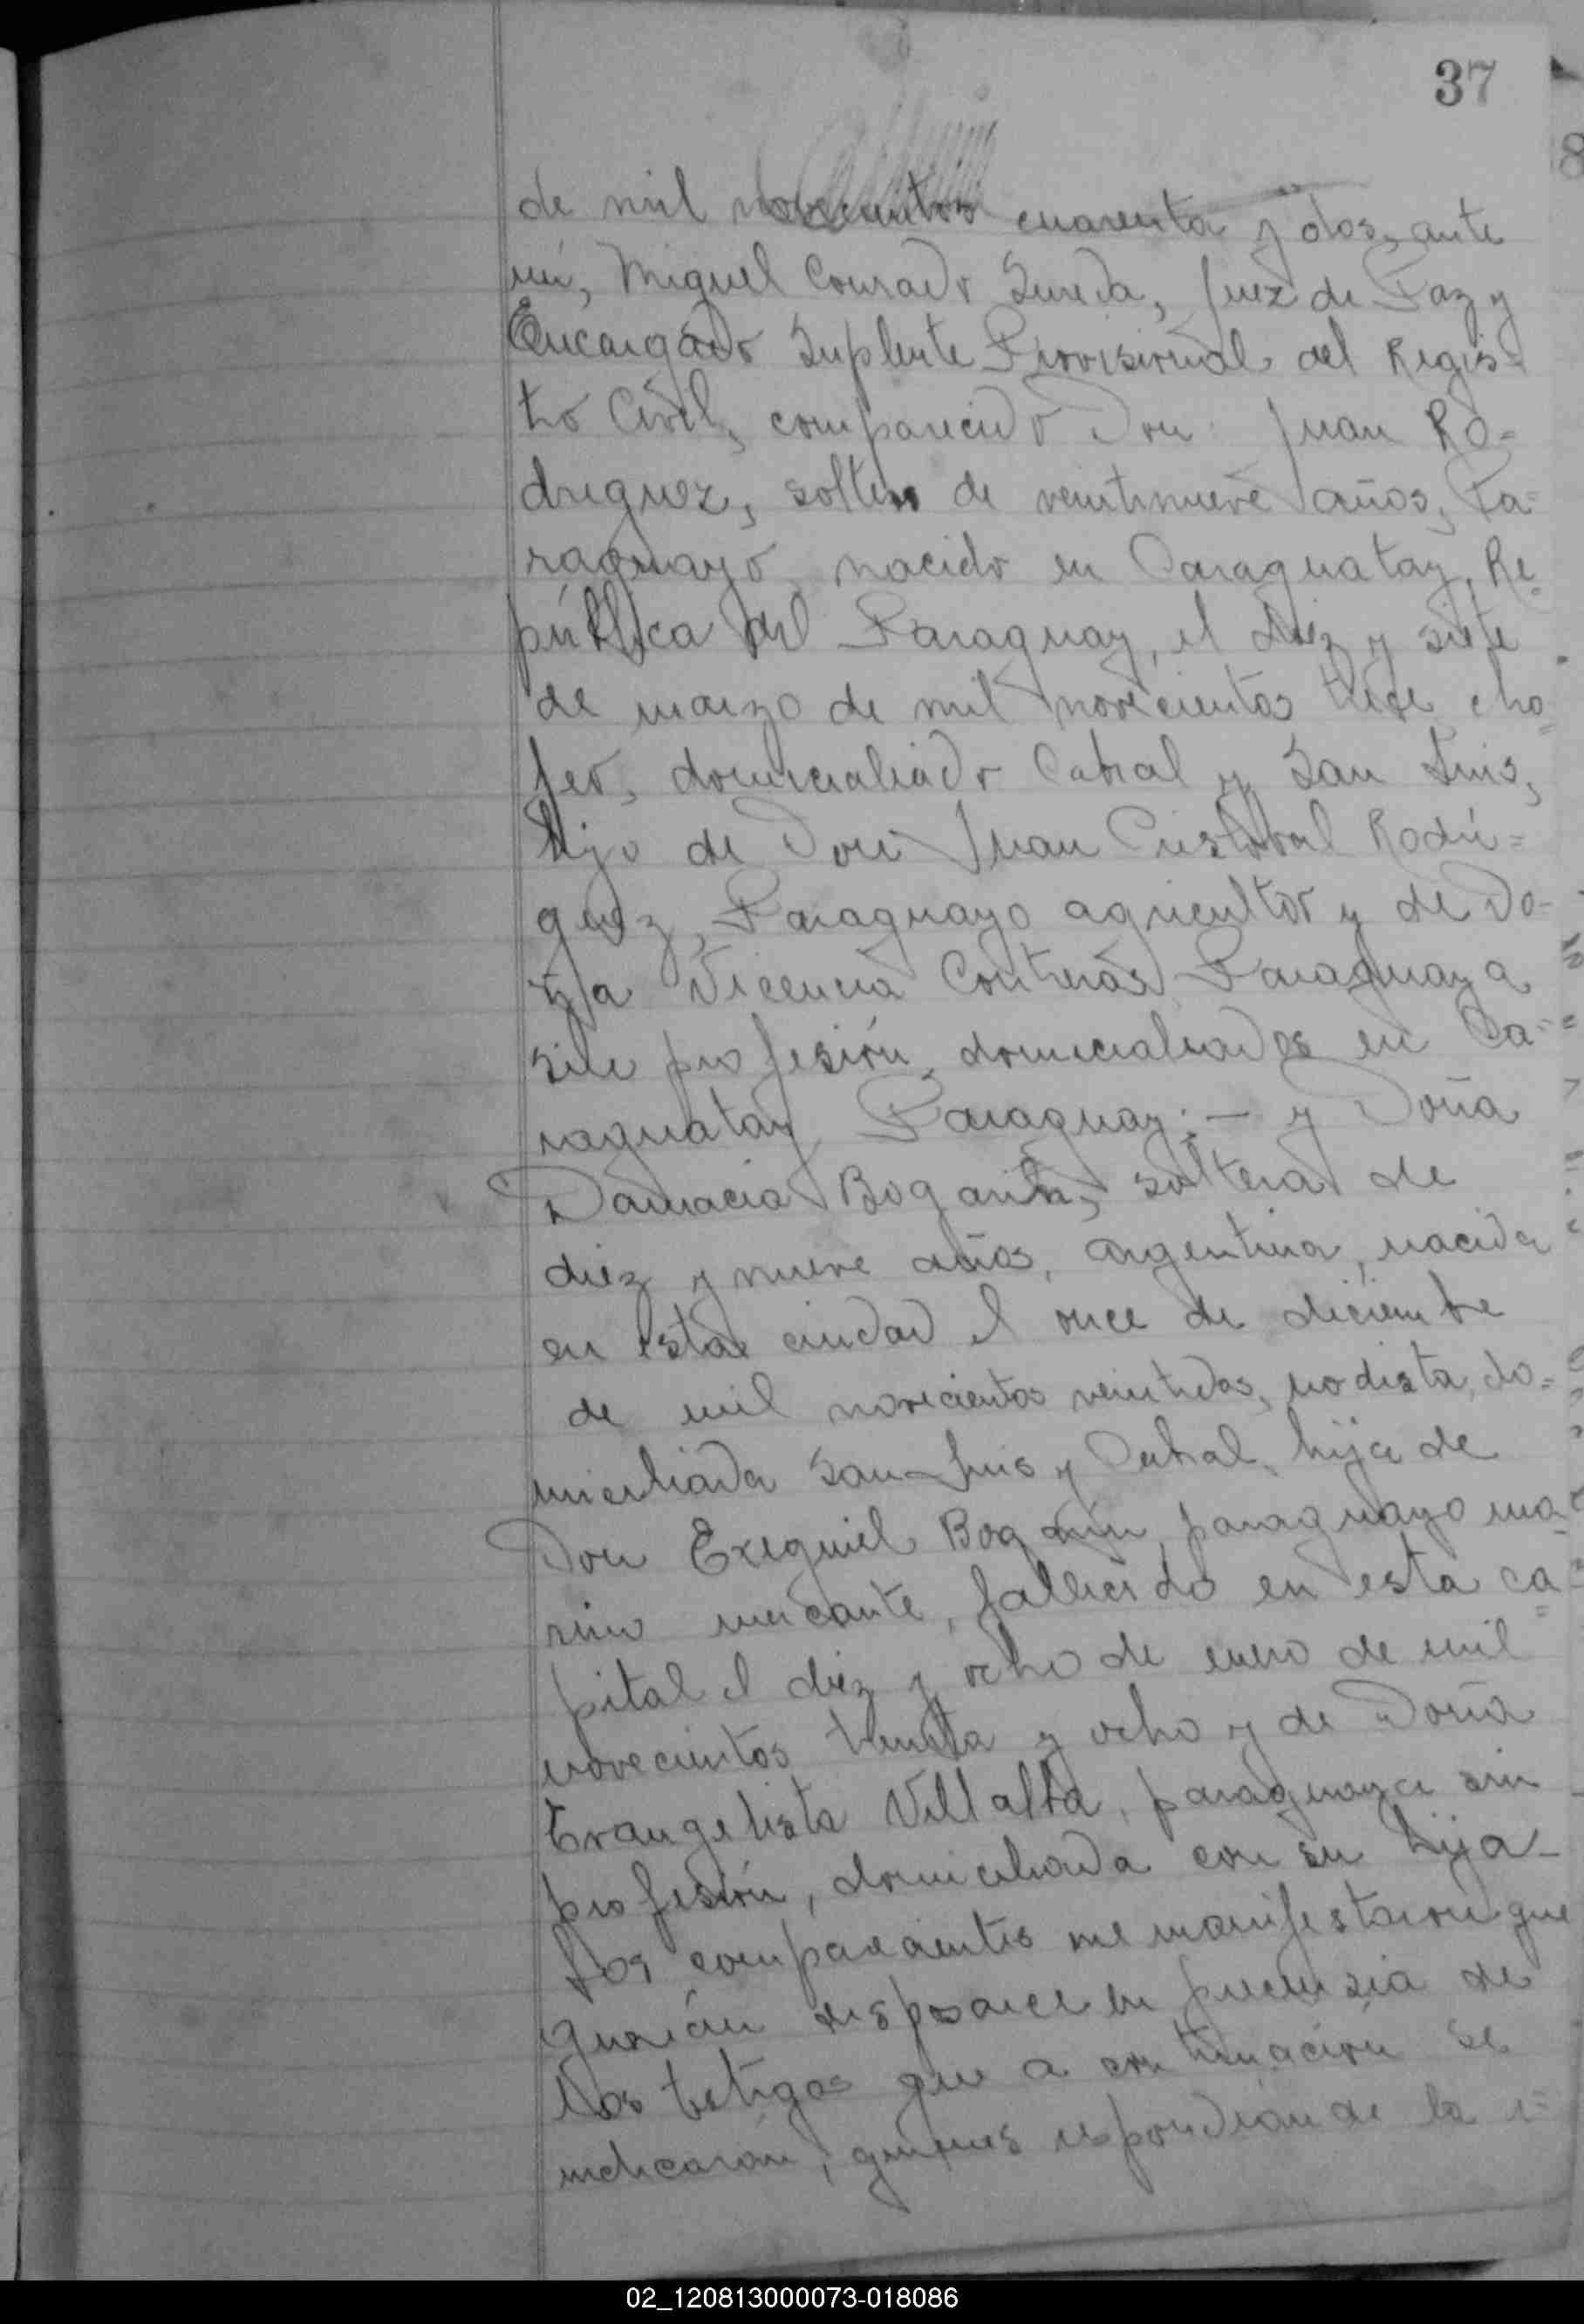 37
de mil novecientos cuarenta y dos, ante
mí, Miguel Conrado Sureda, Juez de Paz y
Encargado Suplente Provisional del Regis-
tro Civil, compareció Don Juan Ro=
driguez, soltero de veintinueve años, Pa=
raguayo, nacido en Caraguatay, Re=
pública del Paraguay, el diez y siete
de marzo de mil novecientos trece cho=
fer, domicialiado Cabral y San Luis,
hijo de Don Juan Cristobal Rodri=
guez, Paraguayo agricultor y de Do-
ña Vicencia Contreras Paraguaya
sin profesión, domicialiados en Ca=
raguatay Paraguay; — y Doña
Damacia Bogarin, soltera de
diez y nueve años, argentina, nacida
en esta ciudad el once de diciembre
de mil novecientos veintidos, modista, do=
miciliada San Luis y Cabral, hija de
Don Exequiel Bogarín, paraguayo ma-
rino mercante, fallecido en esta ca=
pital el diez y ocho de enero de mil
novecientos treinta y ocho y de Doña
Evangelista Villalba, paraguaya sin
profesión, domiciliada con su hija-
Los comparecientes me manifestaron que
querían desposarce en presensia de
los testigos que a continuación se
indicarán, quienes respondían de la i=
02_120813000073-018086